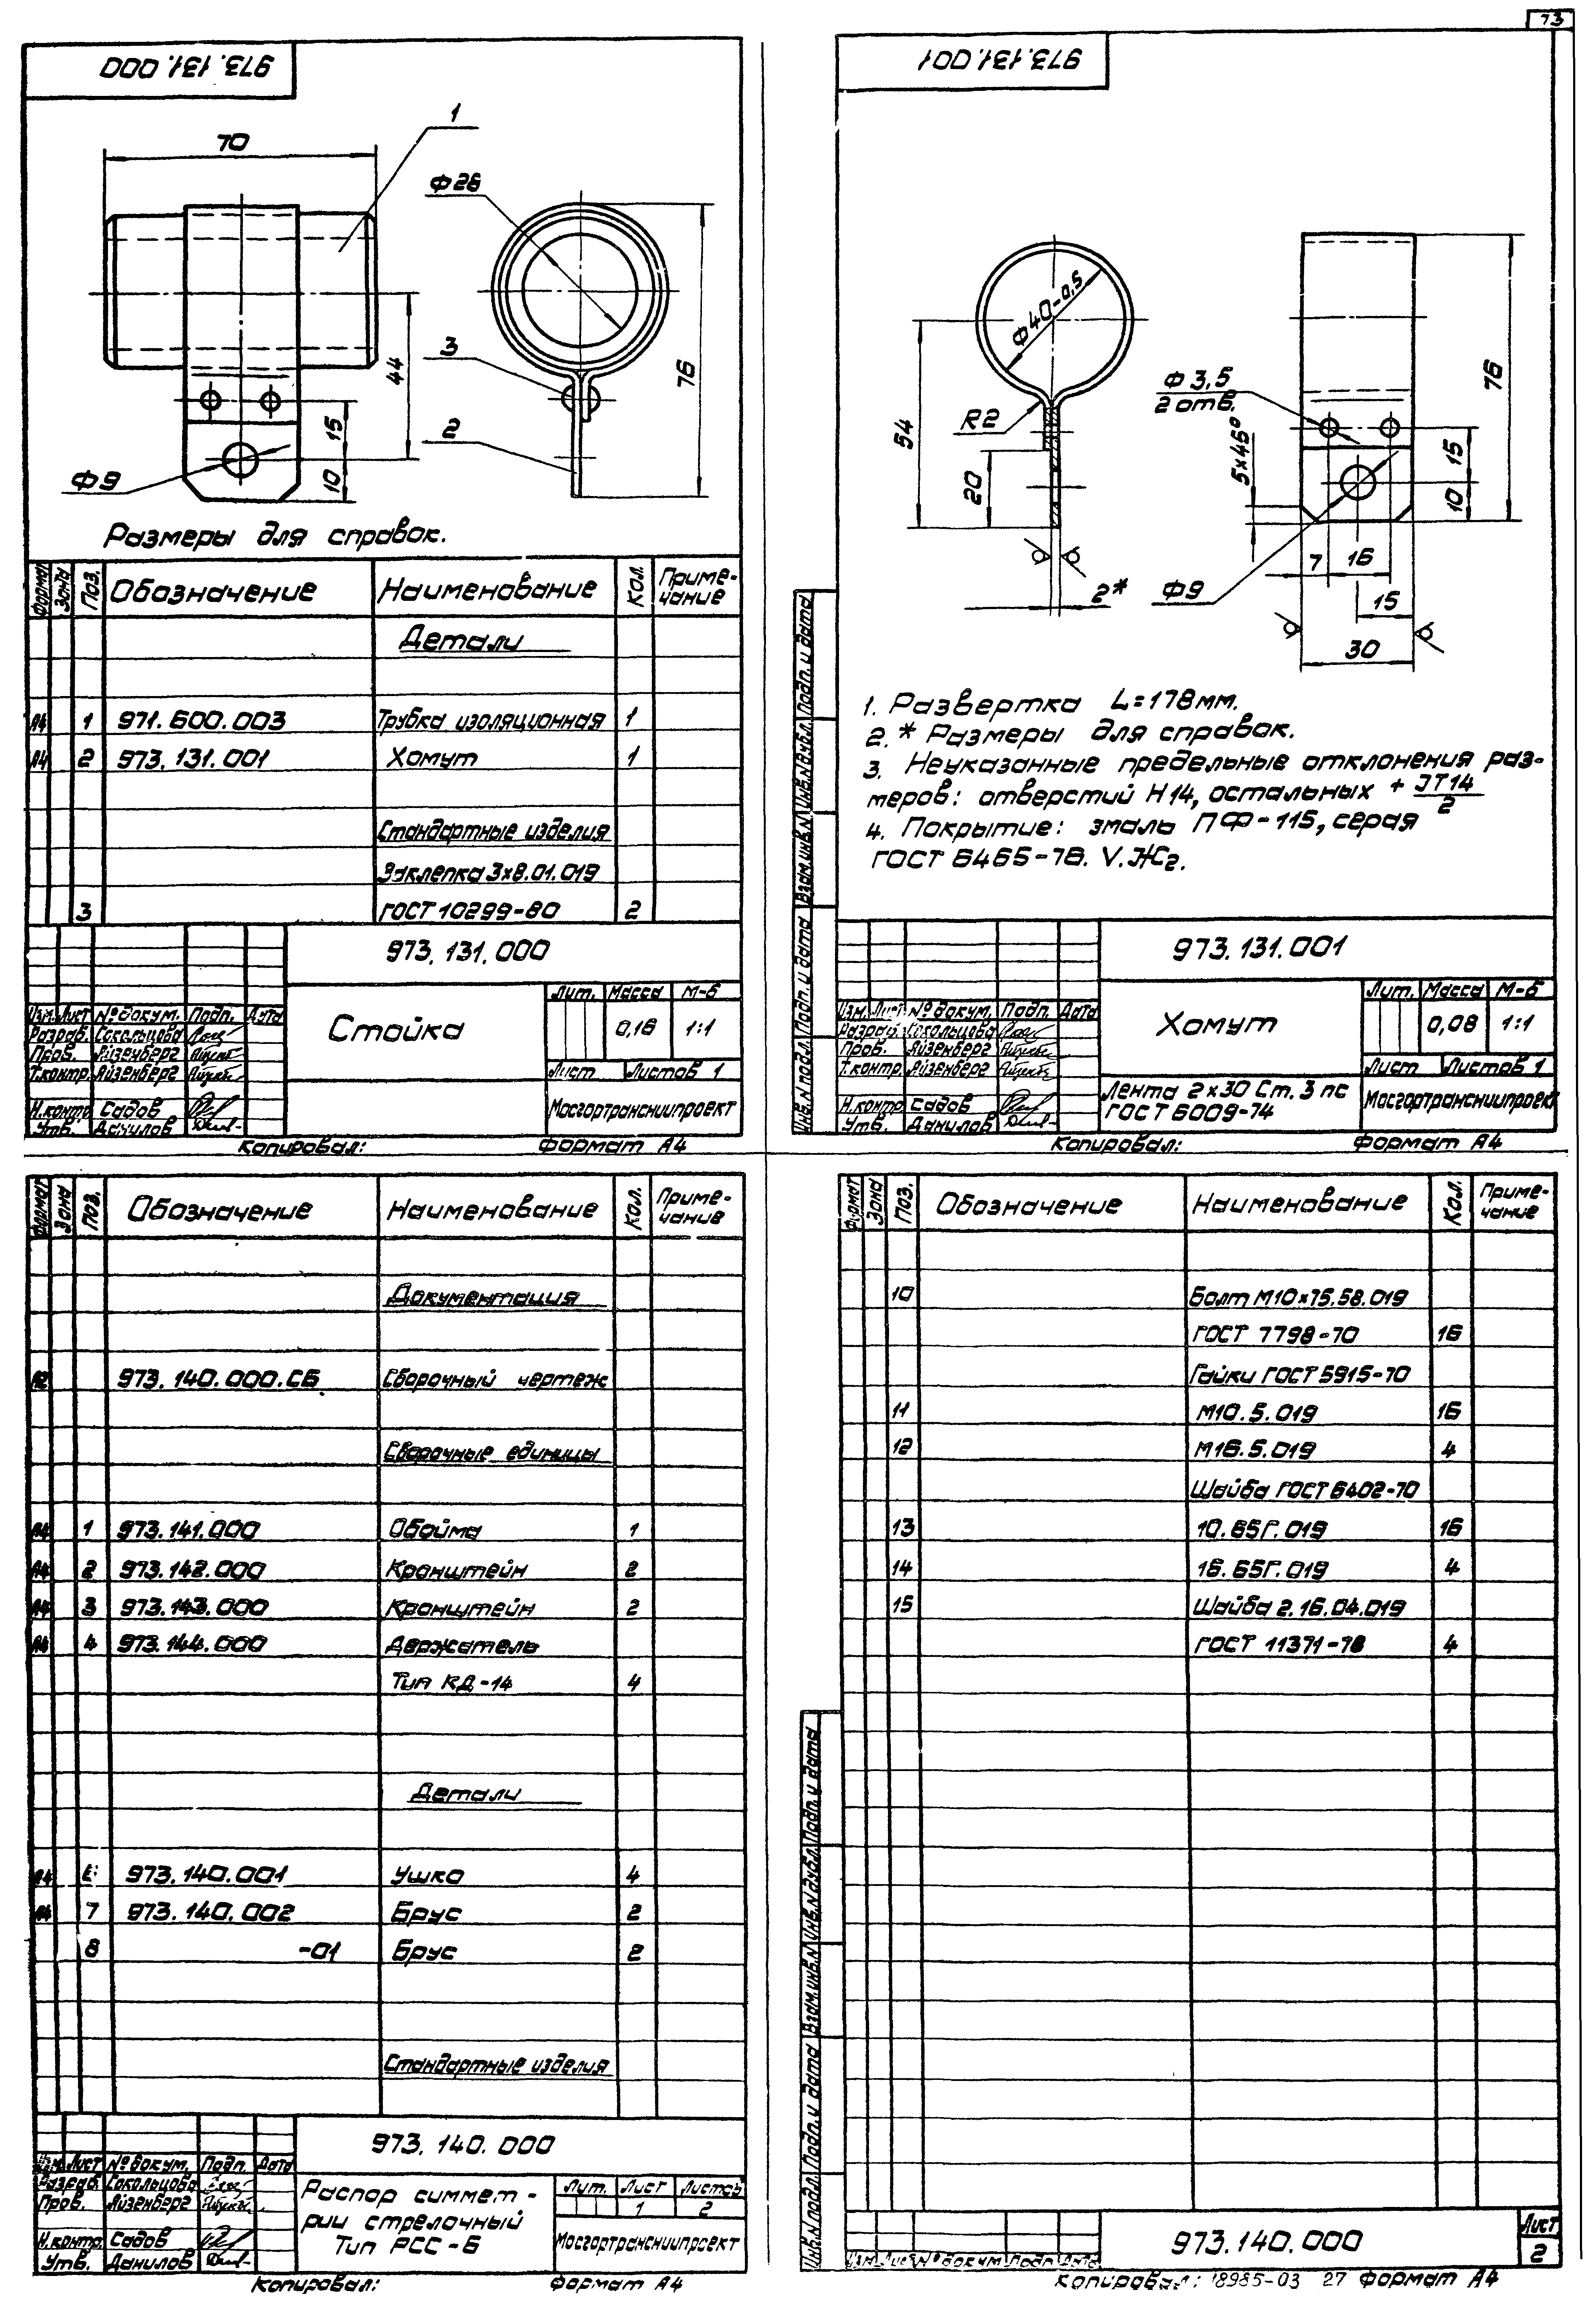 73
973.131.000
70
1
Ф26
76
44
3
2
15
10
Ф9
Размеры для справок.
Формат Зона Поз. Обозначение Наименование Кол. Приме-
чание
Детали
А4 1 971.600.003 Трубка изоляционная 1
А4 2 973.131.001 Хомут 1
Стандартные изделия
Заклепка 3х8.01.019
3 ГОСТ 10299-80 2
973.131.000
Изм. Лист № докум. Подп. Дата
Разраб. Сокольцова
Пров. Айзенберг
Т.контр. Айзенберг
Н.контр. Садов
Утв. Данилов
Стойка
Лит. Масса М-б
0,16 1:1
Лист Листов 1
Мосгортрансниипроект
Копировал: Формат А4
973.131.001
Ф40-0,5
R2
54
20
2*
Ф3,5
2 отв.
5х45°
76
15
10
7 16
Ф9
15
30
1. Развертка L=178мм.
2. * Размеры для справок.
3. Неуказанные предельные отклонения раз-
меров: отверстий Н14, остальных + JT14
2
4. Покрытие: эмаль ПФ-115, серая
ГОСТ 6465-76. V.Ж2.
Инв.N подл. Подп. и дата Взам.инв.N Инв.N дубл. Подп. и дата
973.131.001
Изм. Лист № докум. Подп. Дата
Разраб. Сокольцова
Пров. Айзенберг
Т.контр. Айзенберг
Н.контр. Садов
Утв. Данилов
Хомут
Лит. Масса М-б
0,08 1:1
Лист Листов 1
Лента 2х30 Ст. 3 пс
ГОСТ 6009-74
Мосгортрансниипроект
Копировал: Формат А4
Формат Зона Поз. Обозначение Наименование Кол. Приме-
чание
Документация
А2 973.140.000.СБ Сборочный чертеж
Сборочные единицы
А4 1 973.141.000 Обойма 1
А4 2 973.142.000 Кронштейн 2
А4 3 973.143.000 Кронштейн 2
А4 4 973.144.000 Держатель
Тип КД-14 4
Детали
А4 973.140.001 Ушко 4
А4 7 973.140.002 Брус 2
8 -01 Брус 2
Стандартные изделия
973.140.000
Изм. Лист № докум. Подп. Дата
Разраб. Сокольцова
Пров. Айзенберг
Н.контр. Садов
Утв. Данилов
Распор симмет-
рии стрелочный
Тип РСС-6
Лит. Лист Листов
1 2
Мосгортрансниипроект
Копировал: Формат А4
Формат Зона Поз. Обозначение Наименование Кол. Приме-
чание
10 Болт М10х75.58.019
ГОСТ 7798-70 16
Гайки ГОСТ 5915-70
11 М10.5.019 16
12 М16.5.019 4
Шайба ГОСТ 6402-70
13 10.65Г.019 16
14 16.65Г.019 4
15 Шайба 2.16.04.019
ГОСТ 11371-78 4
Инв.N подл. Подп. и дата Взам.инв.N Инв.N дубл. Подп. и дата
Изм. Лист № докум. Подп. Дата
973.140.000
Лист
2
Копировал: 18985-03 27 Формат А4